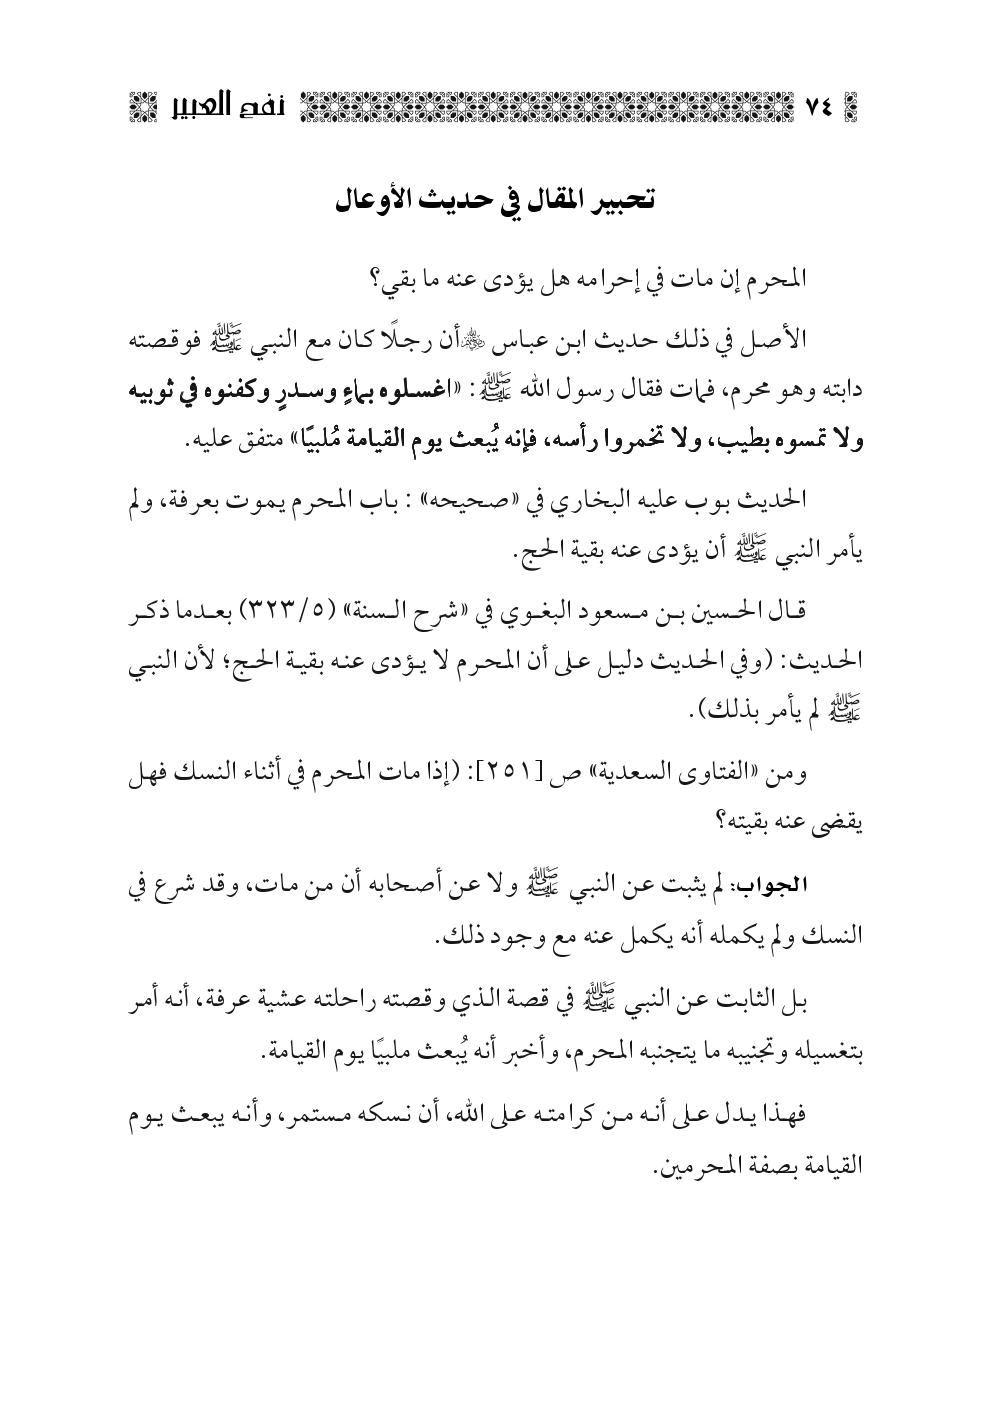 ٧٤ نفح العبير
تحبير المقال في حديث الأوعال
المحرم إن مات في إحرامه هل يؤدى عنه ما بقي؟
الأصل في ذلك حديث ابن عباس ﵁ أن رجلًا كان مع النبي ﷺ فوقصته
دابته وهو محرم، فمات فقال رسول الله ﷺ: «اغسلوه بماءٍ وسدرٍ وكفنوه في ثوبيه
ولا تمسوه بطيب، ولا تخمروا رأسه، فإنه يُبعث يوم القيامة مُلبيًا» متفق عليه.
الحديث بوب عليه البخاري في «صحيحه» : باب المحرم يموت بعرفة، ولم
يأمر النبي ﷺ أن يؤدى عنه بقية الحج.
قال الحسين بن مسعود البغوي في «شرح السنة» (٥/ ٣٢٣) بعدما ذكر
الحديث: (وفي الحديث دليل على أن المحرم لا يؤدى عنه بقية الحج؛ لأن النبي
ﷺ لم يأمر بذلك).
ومن «الفتاوى السعدية» ص [٢٥١]: (إذا مات المحرم في أثناء النسك فهل
يقضى عنه بقيته؟
الجواب: لم يثبت عن النبي ﷺ ولا عن أصحابه أن من مات، وقد شرع في
النسك ولم يكمله أنه يكمل عنه مع وجود ذلك.
بل الثابت عن النبي ﷺ في قصة الذي وقصته راحلته عشية عرفة، أنه أمر
بتغسيله وتجنيبه ما يتجنبه المحرم، وأخبر أنه يُبعث ملبيًا يوم القيامة.
فهذا يدل على أنه من كرامته على الله، أن نسكه مستمر، وأنه يبعث يوم
القيامة بصفة المحرمين.